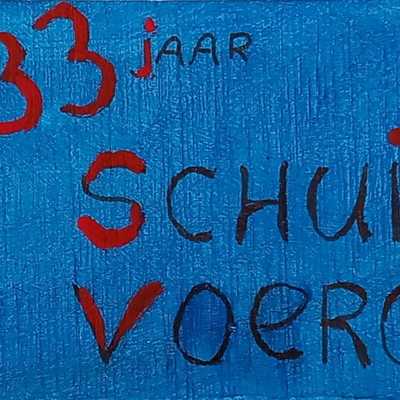 33 jAAR
SCHUi
VOeRO